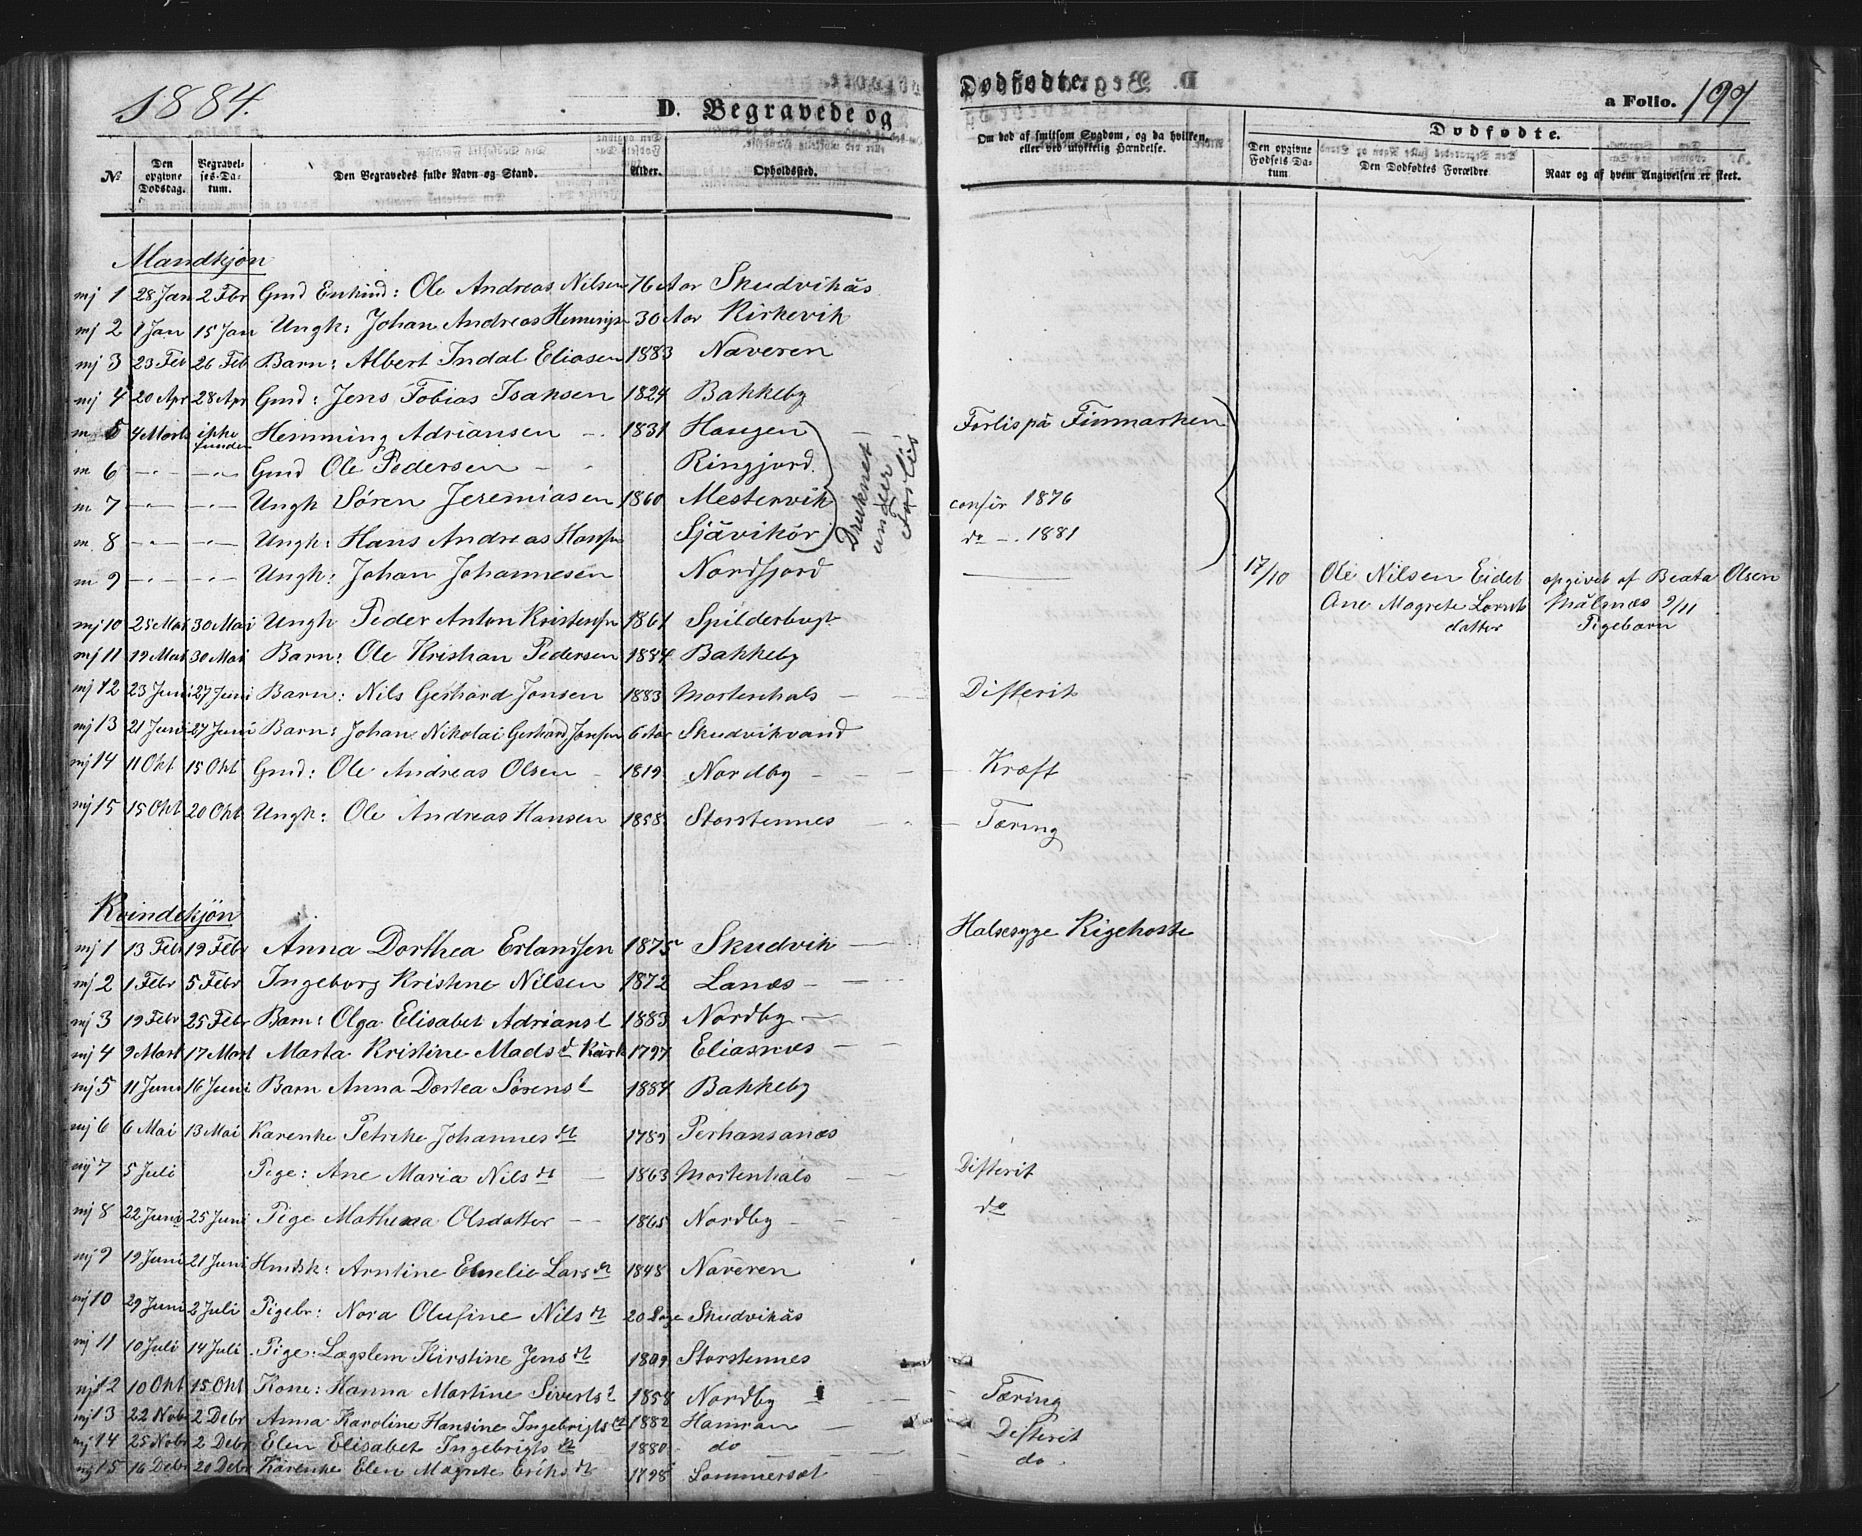 1884.
D. Begravede og
Dødfødte.
a Folio. 197
No
Den opgivne Dødsdag.
Begravelses-Datum.
Den Begravedes fulde Navn og Stand.
Alder.
Opholdssted.
Om død af smitsom Sygdom, og da hvilken, eller ved ulykkelig Hændelse.
Dødfødte.
Den opgivne Fødsels Datum
Den Dødfødtes Forældre
Naar og af hvem Angivelsen er skeet.
Mandkjøn
mj 1 28 Jan 2 Febr Gmd Enkmd: Ole Andreas Nilsen 76 Aar Skudvikås
mj 2 1 Jan 15 Jan Ungk: Johan Andreas Hemmings 30 Aar Kirkevik
mj 3 23 Feb 26 Feb Barn: Albert Indal Eliasen 1883 Naveren
mj 4 20 Apr 28 Apr Gmd: Jens Tobias Isaksen 1824 Bakkeby
m 5 4 Marts ikke funden Hemming Adriansen 1831 Haugen Forlis på Finmarken
m 6 -"- -"- Gmd Ole Pedersen - " Ringjord.
m 7 -"- -"- Ungk Søren Jeremiasen 1860 Mestervik confir 1876
m. 8 -"- -"- Ungk: Hans Andreas Hansen Sjåvikør do - . 1881
m 9 -"- -"- Ungk: Johan Johannesen Nordfjord
Druknet under Forlis
17/10 Ole Nilsen Eidet opgivet af Beata Olsen
Ane Magrete Lornts Målsnæs 9/11
datter Pigebarn
mj 10 25 Mai 30 Mai Ungk Peder Anton Kristensen 1861 Spilderbugt
mj 11 19 Mai 30 Mai Barn: Ole Kristian Pedersen 1884 Bakkeby
mj 12 23 Juni 27 Juni Barn: Nils Gerhard Jonsen 1883 Mortenhals Difterit
mj 13 21 Juni 27 Juni Barn: Johan Nikolai Gerhard Jonsen 6 Aar Skudvikvand
mj 14 11 Okt 15 Okt Gmd: Ole Andreas Olsen 1819 Nordby Kræft
mj 15 15 Okt 20 Okt Ungk: Ole Andreas Hansen 1858 Storstennes Tæring
Kvindekjøn
mj 1 13 Febr 19 Febr Anna Dorthea Erlandsen 1875 Skudvik Halsesyge Kighoste
mj 2 1 Febr 5 Febr Ingeborg Kristine Nilsen 1872 Lanæs
mj 3 19 Febr 25 Febr Barn: Olga Elisabet Adrianst 1883 Nordby
mj 4 9 Mart 17 Mart Marta Kristine Mads d 1797 Eliasnæs
mj 5 11 Juni 16 Juni Barn Anna Dortea Sørens t 1884 Bakkeby
mj 6 6 Mai 13 Mai Karenke Petrike Johannes dt 1789 Perhansanæs
mj 7 5 Juli Pige: Ane Maria Nils dt 1863 Mortenhals Difterit
mj 8 22 Juni 25 Juni Pige Mathena Olsdatter 1865 Nordby do
mj 9 19 Juni 21 Juni Hmdsk: Arntine Emelie Lars dt 1848 Naveren
mj 10 29 Juni 2 Juli Pigebr: Nora Olufine Nils dt 20 Dage Skudvikås
mj 11 10 Juli 14 Juli Pige: Lægslem Kirstine Jens dt 1809 Storstennes
mj 12 10 Okt 15 Okt Kone: Hanna Martine Siverts t 1858 Nordby Tæring
mj 13 22 Nobr 2 Debr Anna Karoline Hansine Ingebrigts dt 1882 Hamran Difterit
mj 14 25 Nobr 2 Debr Elen Elisabet Ingebrigts dt 1880 do do.
mj 15 16 Debr 20 Debr Karenke Elen Magrete Eriks dt 1798 Sommerset